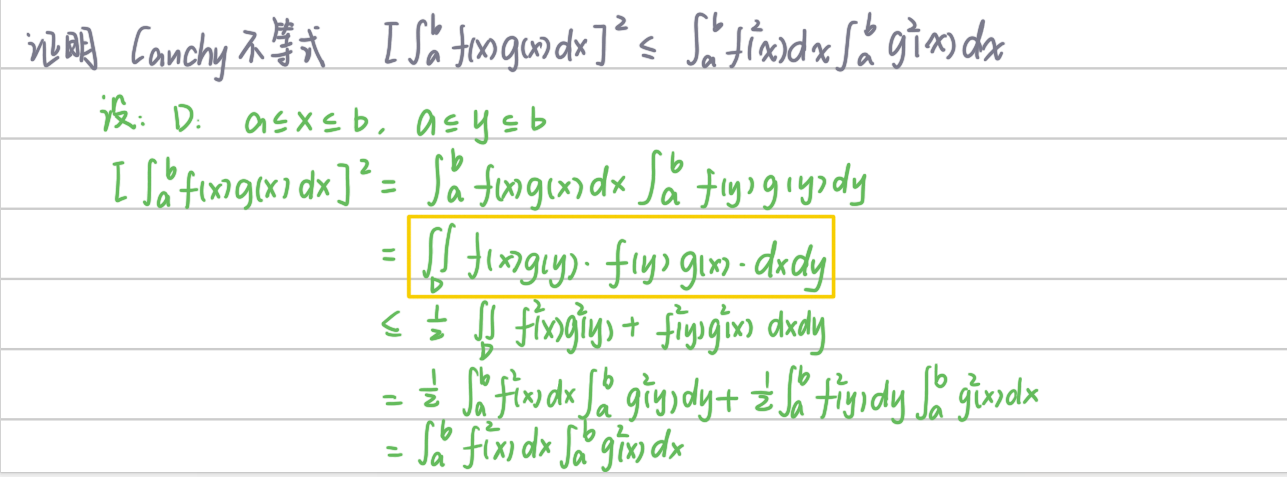 证明 Cauchy 不等式 [∫ₐᵇ f(x)g(x)dx]² ≤ ∫ₐᵇ f²(x)dx ∫ₐᵇ g²(x)dx
设: D: a≤x≤b, a≤y≤b
[∫ₐᵇ f(x)g(x)dx]² = ∫ₐᵇ f(x)g(x)dx ∫ₐᵇ f(y)g(y)dy
= ∬_D f(x)g(y)·f(y)g(x)·dxdy
≤ ½ ∬_D f²(x)g²(y) + f²(y)g²(x) dxdy
= ½ ∫ₐᵇ f²(x)dx ∫ₐᵇ g²(y)dy + ½ ∫ₐᵇ f²(y)dy ∫ₐᵇ g²(x)dx
= ∫ₐᵇ f²(x)dx ∫ₐᵇ g²(x)dx